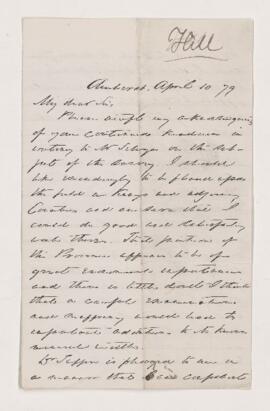 Hall
Amherst, April 10 79
My dear Sir,
Please accept my acknowledgment
of your continued kindness in
writing to Mr Selwyn on the sub-
ject of the Survey. I should
like exceedingly to be placed upon
the field in Kings and adjoining
Counties and am sure that I
could do good and satisfactory
work there. That portion of
the Province appears to be of
great economical importance
and there is little doubt I think
that a careful examination
and mapping would lead to
important additions to its known
mineral wealth.
Dr is pleased to see in
a manner that